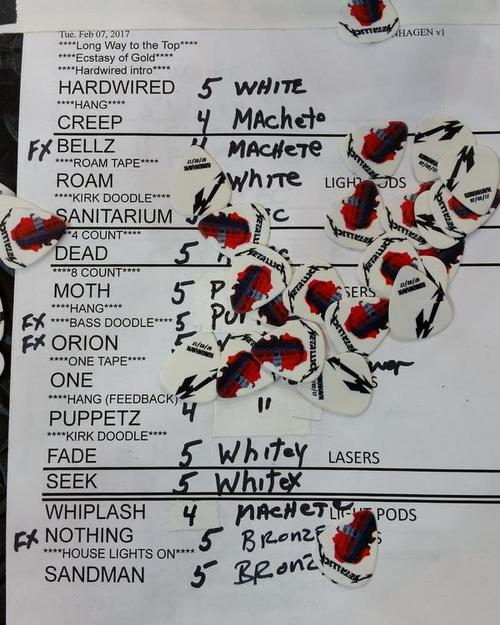 Tue. Feb 07, 2017 NHAGEN v1
****Long Way to the Top****
****Ecstasy of Gold****
****Hardwired intro****
HARDWIRED 5 WHITE
****HANG****
CREEP 4 MACHete
FX BELLZ 4 MACHETE
****ROAM TAPE****
ROAM WHITE LIGH PODS
****KIRK DOODLE****
SANITARIUM
**4 COUNT****
DEAD 5
****8 COUNT****
MOTH 5 P SERS
****HANG****
FX ****BASS DOODLE**** 5 PU
FX ORION
****ONE TAPE****
ONE
****HANG (FEEDBACK)
PUPPETZ 4 "
****KIRK DOODLE****
FADE 5 WHitey LASERS
SEEK 5 WHiteX
WHIPLASH 4 MACHETE LIGHT PODS
FX NOTHING 5 BRONZE S
****HOUSE LIGHTS ON****
SANDMAN 5 BRONZ
METALLICA
METALLICA
METALLICA
METALLICA
HARDWIRED